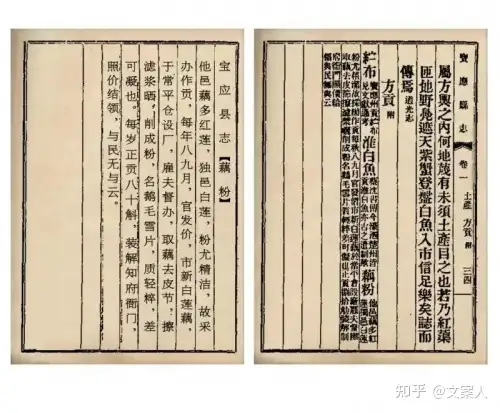 寶應縣志 卷一 土產 方貢 附 三四
屬方輿之內何地蔑有未須土產目之也若乃紅藥
匝地野鳧遮天紫蟹登盤白魚入市信足樂矣誌而
傳焉 道光志
方貢 附
紵布
淮白魚
藕粉 他邑藕多紅蓮獨邑白蓮
宝应县志【藕粉】
他邑藕多红莲，独邑白莲，粉尤精洁，故采
办作贡，每年八九月，官发价，市新白莲藕，
于常平仓设厂，雇夫督办，取藕去皮节，擦
滤浆晒，削成粉，名鹅毛雪片，质轻粹，差
可凝也。每岁正贡八十斛，装解知府衙门，
照价结领，与民无与云。
知乎 @文案人